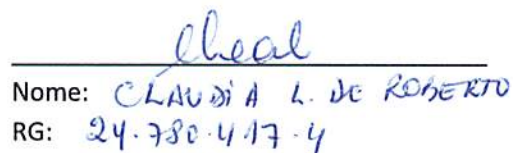 Nome: CLAUDIA L. DE ROBERTO
RG: 24.780.417-4